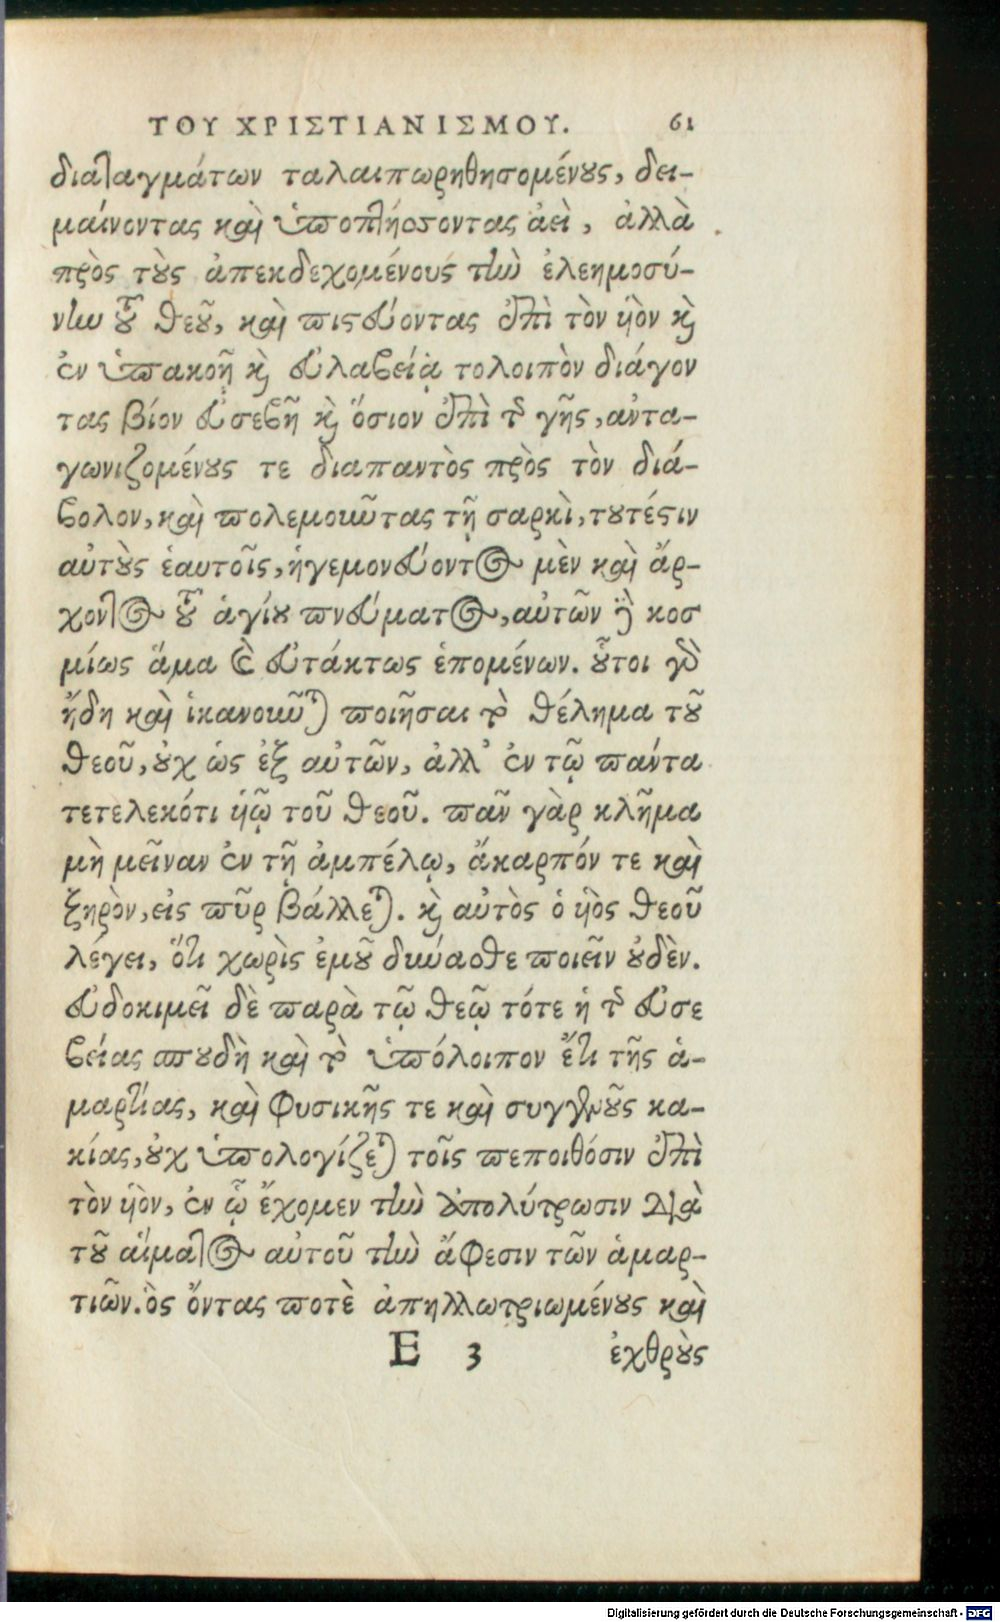 ΤΟΥ ΧΡΙΣΤΙΑΝΙΣΜΟΥ. 61
διαταγμάτων ταλαιπωρηθησομένους, δει-
μαίνοντας καὶ ὑποπλήσσοντας ἀεὶ, ἀλλὰ
πρὸς τοὺς ἀπεκδεχομένους τὴν ἐλεημοσύ-
νην τοῦ θεοῦ, καὶ πιστεύοντας ἐπὶ τὸν υἱὸν καὶ
ἐν ὑπακοῇ καὶ εὐλαβείᾳ τολοιπὸν διάγον
τας βίον εὐσεβῆ καὶ ὅσιον ἐπὶ τῆς γῆς, αὐτα-
γωνιζομένους τε διαπαντὸς πρὸς τὸν διά-
βολον, καὶ πολεμοῦντας τῇ σαρκὶ, τουτέστιν
αὐτοὺς ἑαυτοῖς, ἡγεμονεύοντος μὲν καὶ ἄρ-
χοντος τοῦ ἁγίου πνεύματος, αὐτῶν δὲ κοσ
μίως ἅμα καὶ εὐτάκτως ἑπομένων. οὗτοι γὰρ
ἤδη καὶ ἱκανοῦνται ποιῆσαι τὸ θέλημα τοῦ
θεοῦ, οὐχ ὡς ἐξ αὐτῶν, ἀλλ' ἐν τῷ πάντα
τετελεκότι υἱῷ τοῦ θεοῦ. πᾶν γὰρ κλῆμα
μὴ μεῖναν ἐν τῇ ἀμπέλῳ, ἄκαρπόν τε καὶ
ξηρὸν, εἰς πῦρ βάλλεται. καὶ αὐτὸς ὁ υἱὸς θεοῦ
λέγει, ὅτι χωρὶς ἐμοῦ δύνασθε ποιεῖν οὐδὲν.
εὐδοκιμεῖ δὲ παρὰ τῷ θεῷ τότε ἡ τῆς εὐσε
βείας σπουδὴ καὶ τὸ ὑπόλοιπον ἔτι τῆς ἁ-
μαρτίας, καὶ φυσικῆς τε καὶ συγγενοῦς κα-
κίας, οὐχ ὑπολογίζεται τοῖς πεποιθόσιν ἐπὶ
τὸν υἱὸν, ἐν ᾧ ἔχομεν τὴν ἀπολύτρωσιν διὰ
τοῦ αἵματος αὐτοῦ τὴν ἄφεσιν τῶν ἁμαρ-
τιῶν. ὃς ὄντας ποτὲ ἀπηλλωτριωμένους καὶ
E 3 ἐχθροὺς
Digitalisierung gefördert durch die Deutsche Forschungsgemeinschaft - DFG